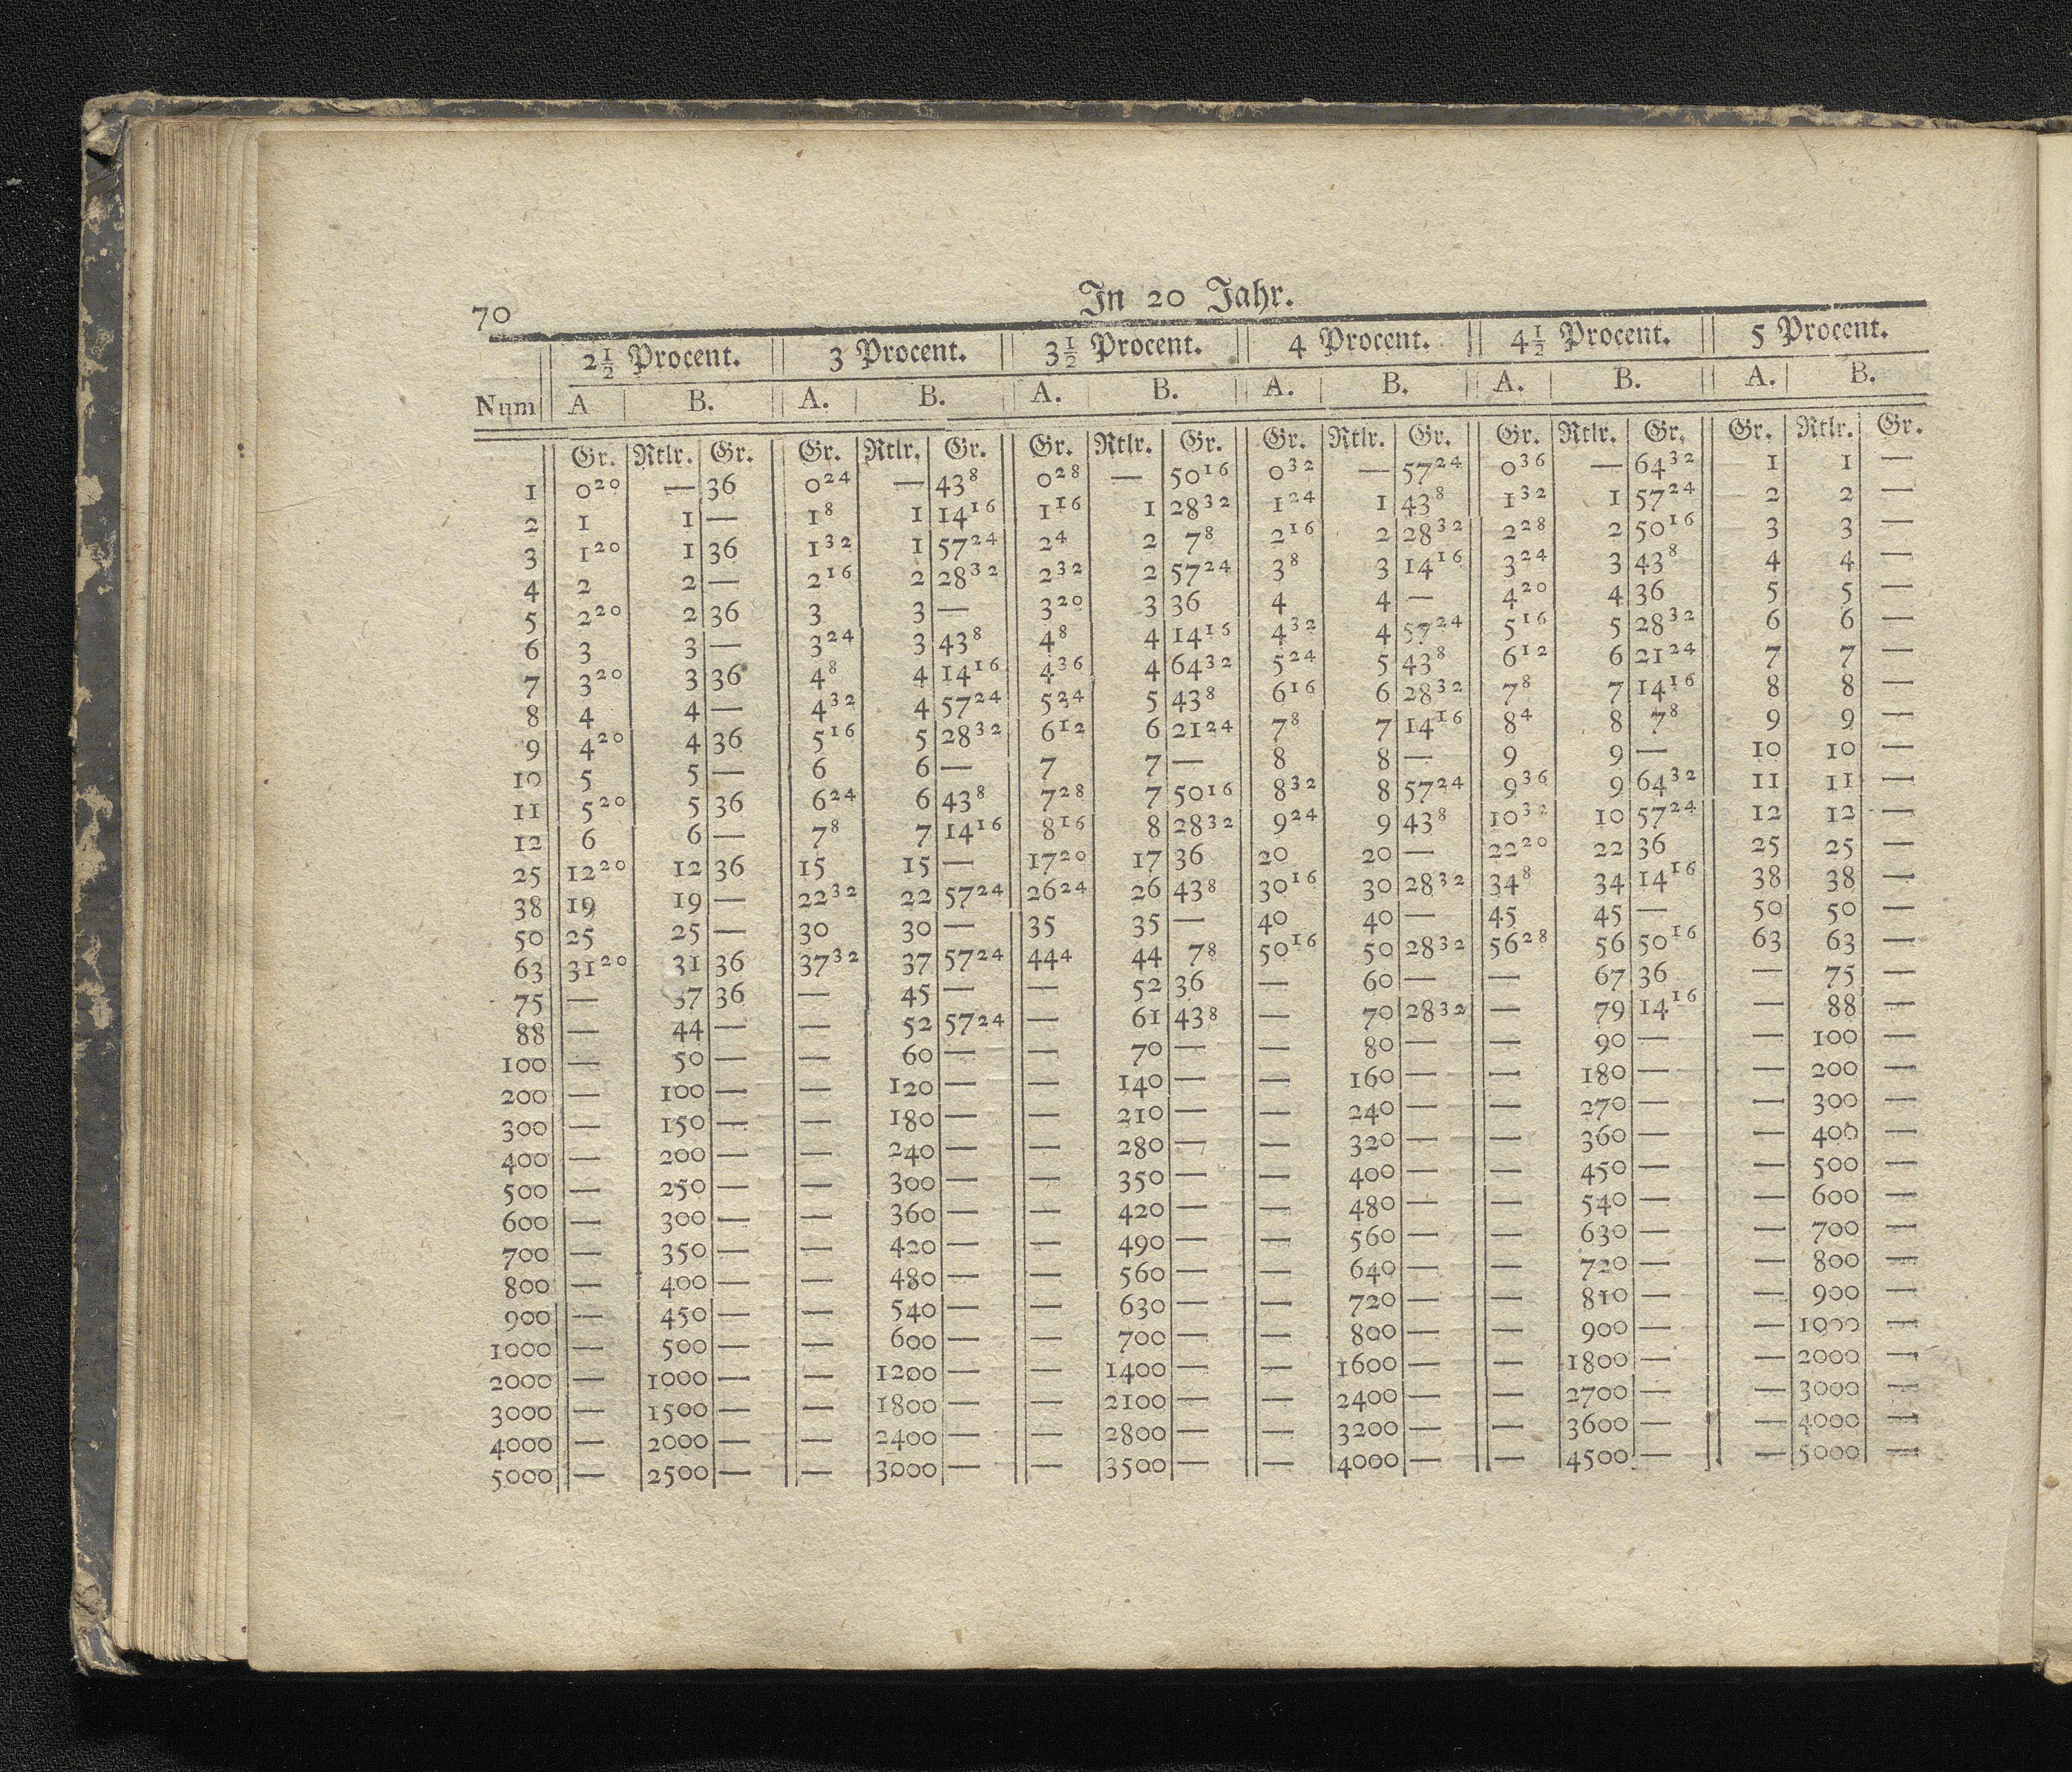 70 In 20 Jahr.
2½ Procent. 3 Procent. 3½ Procent. 4 Procent. 4½ Procent. 5 Procent.
Num A B. A. B. A. B. A. B. A. B. A. B.
Gr. Rtlr. Gr. Gr. Rtlr. Gr. Gr. Rtlr. Gr. Gr. Rtlr. Gr. Gr. Rtlr. Gr. Gr. Rtlr. Gr.
1 0²⁰ — 36 0²⁴ — 43⁸ 0²⁸ — 50¹⁶ 0³² — 57²⁴ 0³⁶ — 64³² 1 1 —
2 1 1 — 1⁸ 1 14¹⁶ 1¹⁶ 1 28³² 1²⁴ 1 43⁸ 1³² 1 57²⁴ 2 2 —
3 1²⁰ 1 36 1³² 1 57²⁴ 2⁴ 2 7⁸ 2¹⁶ 2 28³² 2²⁸ 2 50¹⁶ 3 3 —
4 2 2 — 2¹⁶ 2 28³² 2³² 2 57²⁴ 3⁸ 3 14¹⁶ 3²⁴ 3 43⁸ 4 4 —
5 2²⁰ 2 36 3 3 — 3²⁰ 3 36 4 4 — 4²⁰ 4 36 5 5 —
6 3 3 — 3²⁴ 3 43⁸ 4⁸ 4 14¹⁶ 4³² 4 57²⁴ 5¹⁶ 5 28³² 6 6 —
7 3²⁰ 3 36 4⁸ 4 14¹⁶ 4³⁶ 4 64³² 5²⁴ 5 43⁸ 6¹² 6 21²⁴ 7 7 —
8 4 4 — 4³² 4 57²⁴ 5²⁴ 5 43⁸ 6¹⁶ 6 28³² 7⁸ 7 14¹⁶ 8 8 —
9 4²⁰ 4 36 5¹⁶ 5 28³² 6¹² 6 21²⁴ 7⁸ 7 14¹⁶ 8⁴ 8 7⁸ 9 9 —
10 5 5 — 6 6 — 7 7 — 8 8 — 9 9 — 10 10 —
11 5²⁰ 5 36 6²⁴ 6 43⁸ 7²⁸ 7 50¹⁶ 8³² 8 57²⁴ 9³⁶ 9 64³² 11 11 —
12 6 6 — 7⁸ 7 14¹⁶ 8¹⁶ 8 28³² 9²⁴ 9 43⁸ 10³² 10 57²⁴ 12 12 —
25 12²⁰ 12 36 15 15 — 17²⁰ 17 36 20 20 — 22²⁰ 22 36 25 25 —
38 19 19 — 22³² 22 57²⁴ 26²⁴ 26 43⁸ 30¹⁶ 30 28³² 34⁸ 34 14¹⁶ 38 38 —
50 25 25 — 30 30 — 35 35 — 40 40 — 45 45 — 50 50 —
63 31²⁰ 31 36 37³² 37 57²⁴ 44⁴ 44 7⁸ 50¹⁶ 50 28³² 56²⁸ 56 50¹⁶ 63 63 —
75 — 37 36 — 45 — — 52 36 — 60 — — 67 36 — 75 —
88 — 44 — — 52 57²⁴ — 61 43⁸ — 70 28³² — 79 14¹⁶ — 88 —
100 — 50 — — 60 — — 70 — — 80 — — 90 — — 100 —
200 — 100 — — 120 — — 140 — — 160 — — 180 — — 200 —
300 — 150 — — 180 — — 210 — — 240 — — 270 — — 300 —
400 — 200 — — 240 — — 280 — — 320 — — 360 — — 400 —
500 — 250 — — 300 — — 350 — — 400 — — 450 — — 500 —
600 — 300 — — 360 — — 420 — — 480 — — 540 — — 600 —
700 — 350 — — 420 — — 490 — — 560 — — 630 — — 700 —
800 — 400 — — 480 — — 560 — — 640 — — 720 — — 800 —
900 — 450 — — 540 — — 630 — — 720 — — 810 — — 900 —
1000 — 500 — — 600 — — 700 — — 800 — — 900 — — 1000 —
2000 — 1000 — — 1200 — — 1400 — — 1600 — — 1800 — — 2000 —
3000 — 1500 — — 1800 — — 2100 — — 2400 — — 2700 — — 3000 —
4000 — 2000 — — 2400 — — 2800 — — 3200 — — 3600 — — 4000 —
5000 — 2500 — — 3000 — — 3500 — — 4000 — — 4500 — — 5000 —